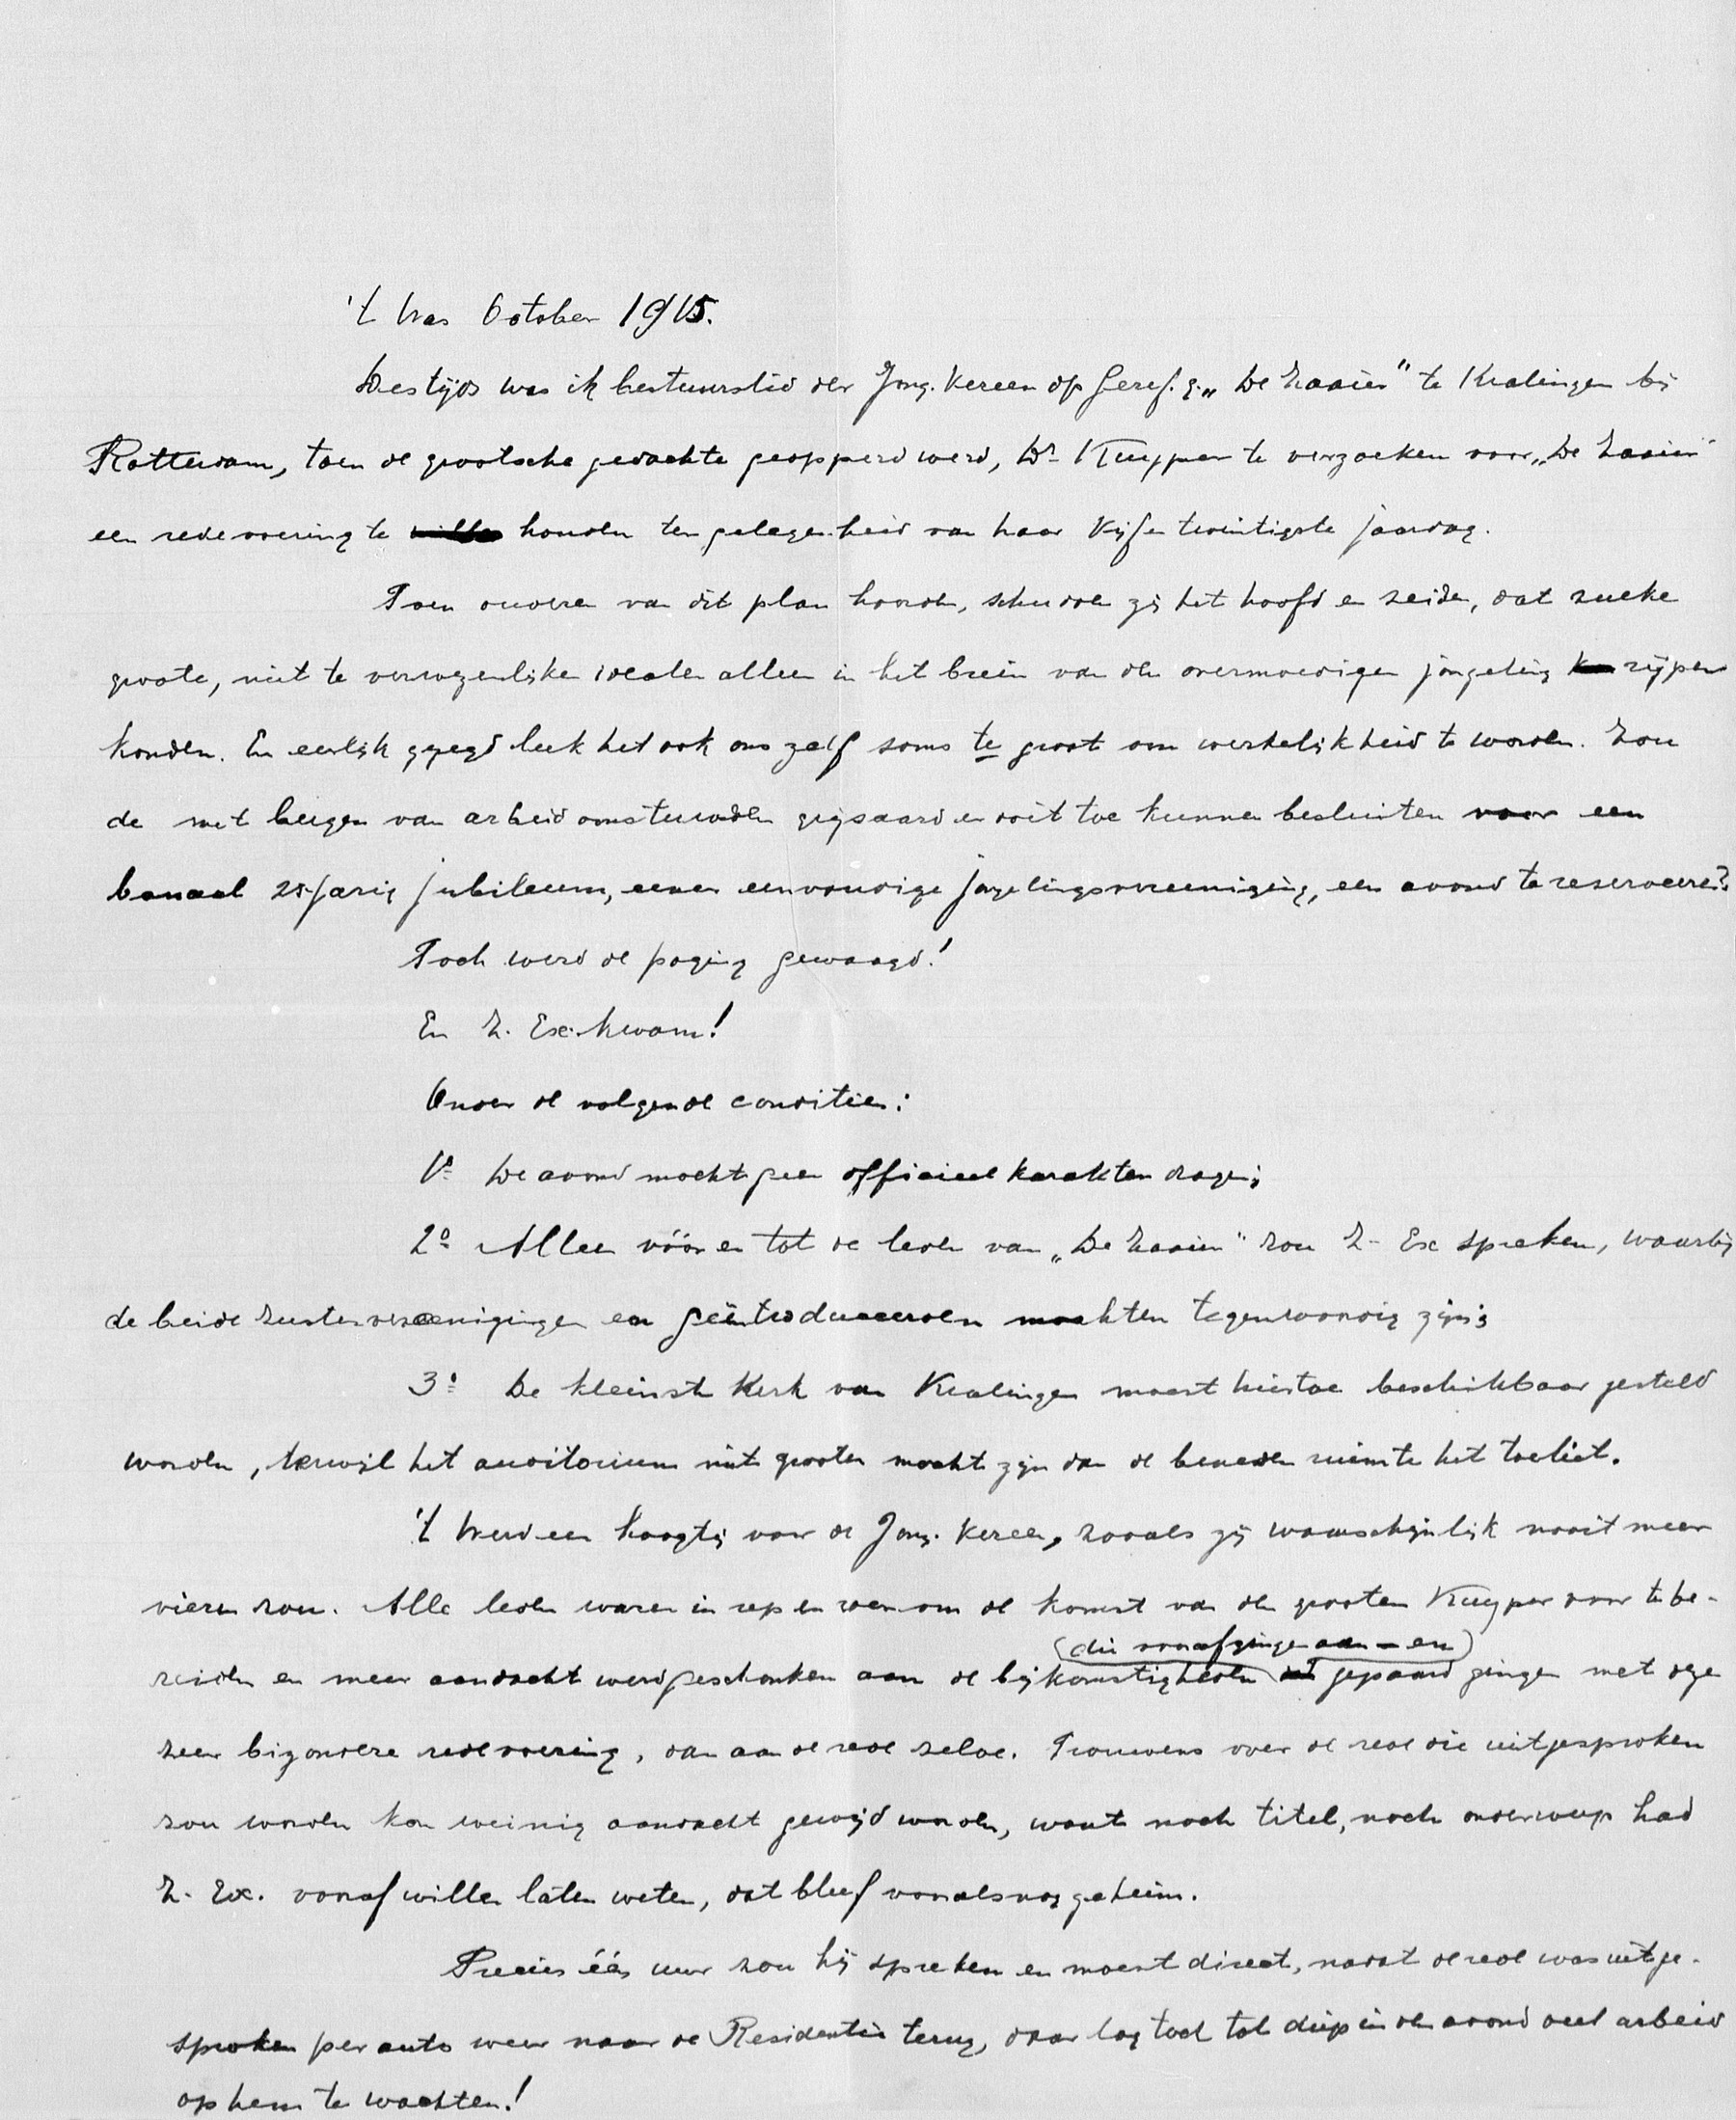 't Was October 1915.
Destijds was ik bestuurslid der Jong. Vereen op Geref. g. „De Zaaier" te Kralingen bij
Rotterdam, toen de grootsche gedachte geopperd werd, Dr. Kuyper te verzoeken voor „De Zaaier"
een redevoering te houden ter gelegenheid van haar Vijfentwintigste jaardag.
Toen ouderen van dit plan hoorden, schudden zij het hoofd en zeiden, dat zulke
groote, niet te verwezenlijke idealen alleen in het brein van den overmoedigen jongeling rijpen
konden. En eerlijk gezegd leek het ook ons zelf soms te groot om werkelijkheid te worden. Zou
de met bergen van arbeid omstuwden grijsaard er ooit toe kunnen besluiten voor een
banaal 25-jarig jubileum, eener eenvoudige jongelingsvereeniging, een avond te reserveeren?
Toch werd de poging gewaagd!
En Z. Exc. kwam!
Onder de volgende condities:
1o De avond mocht geen officieel karakter dragen;
2o Alleen vóór en tot de leden van „De Zaaier" zou Z. Ex spreken, waarbij
de beide zustervereenigingen en geïntroduceerden mochten tegenwoordig zijn;
3o De kleinste Kerk van Kralingen moest hiertoe beschikbaar gesteld
worden, terwijl het auditorium niet grooter mocht zijn dan de beneden ruimte het toeliet.
't Werd een hoogtij voor de Jong. Vereen, zooals zij waarschijnlijk nooit meer
vieren zou. Alle leden waren in rep en roer om de komst van den grooten Kuyper voor te be-
(die voorafgingen aan – en)
reiden en meer aandacht werd geschonken aan de bijkomstigheden gepaard gingen met deze
zeer bizondere redevoering, dan aan de rede zelve. Trouwens over de rede die uitgesproken
zou worden kon weinig aandacht gewijd worden, want noch titel, noch onderwerp had
Z. Ex. vooraf willen laten weten, dat bleef vooralsnog geheim.
Precies één uur zou hij spreken en moest direct, nadat de rede was uitge-
sproken per auto weer naar de Residentie terug, daar lag toch tot diep in den avond veel arbeid
op hem te wachten!